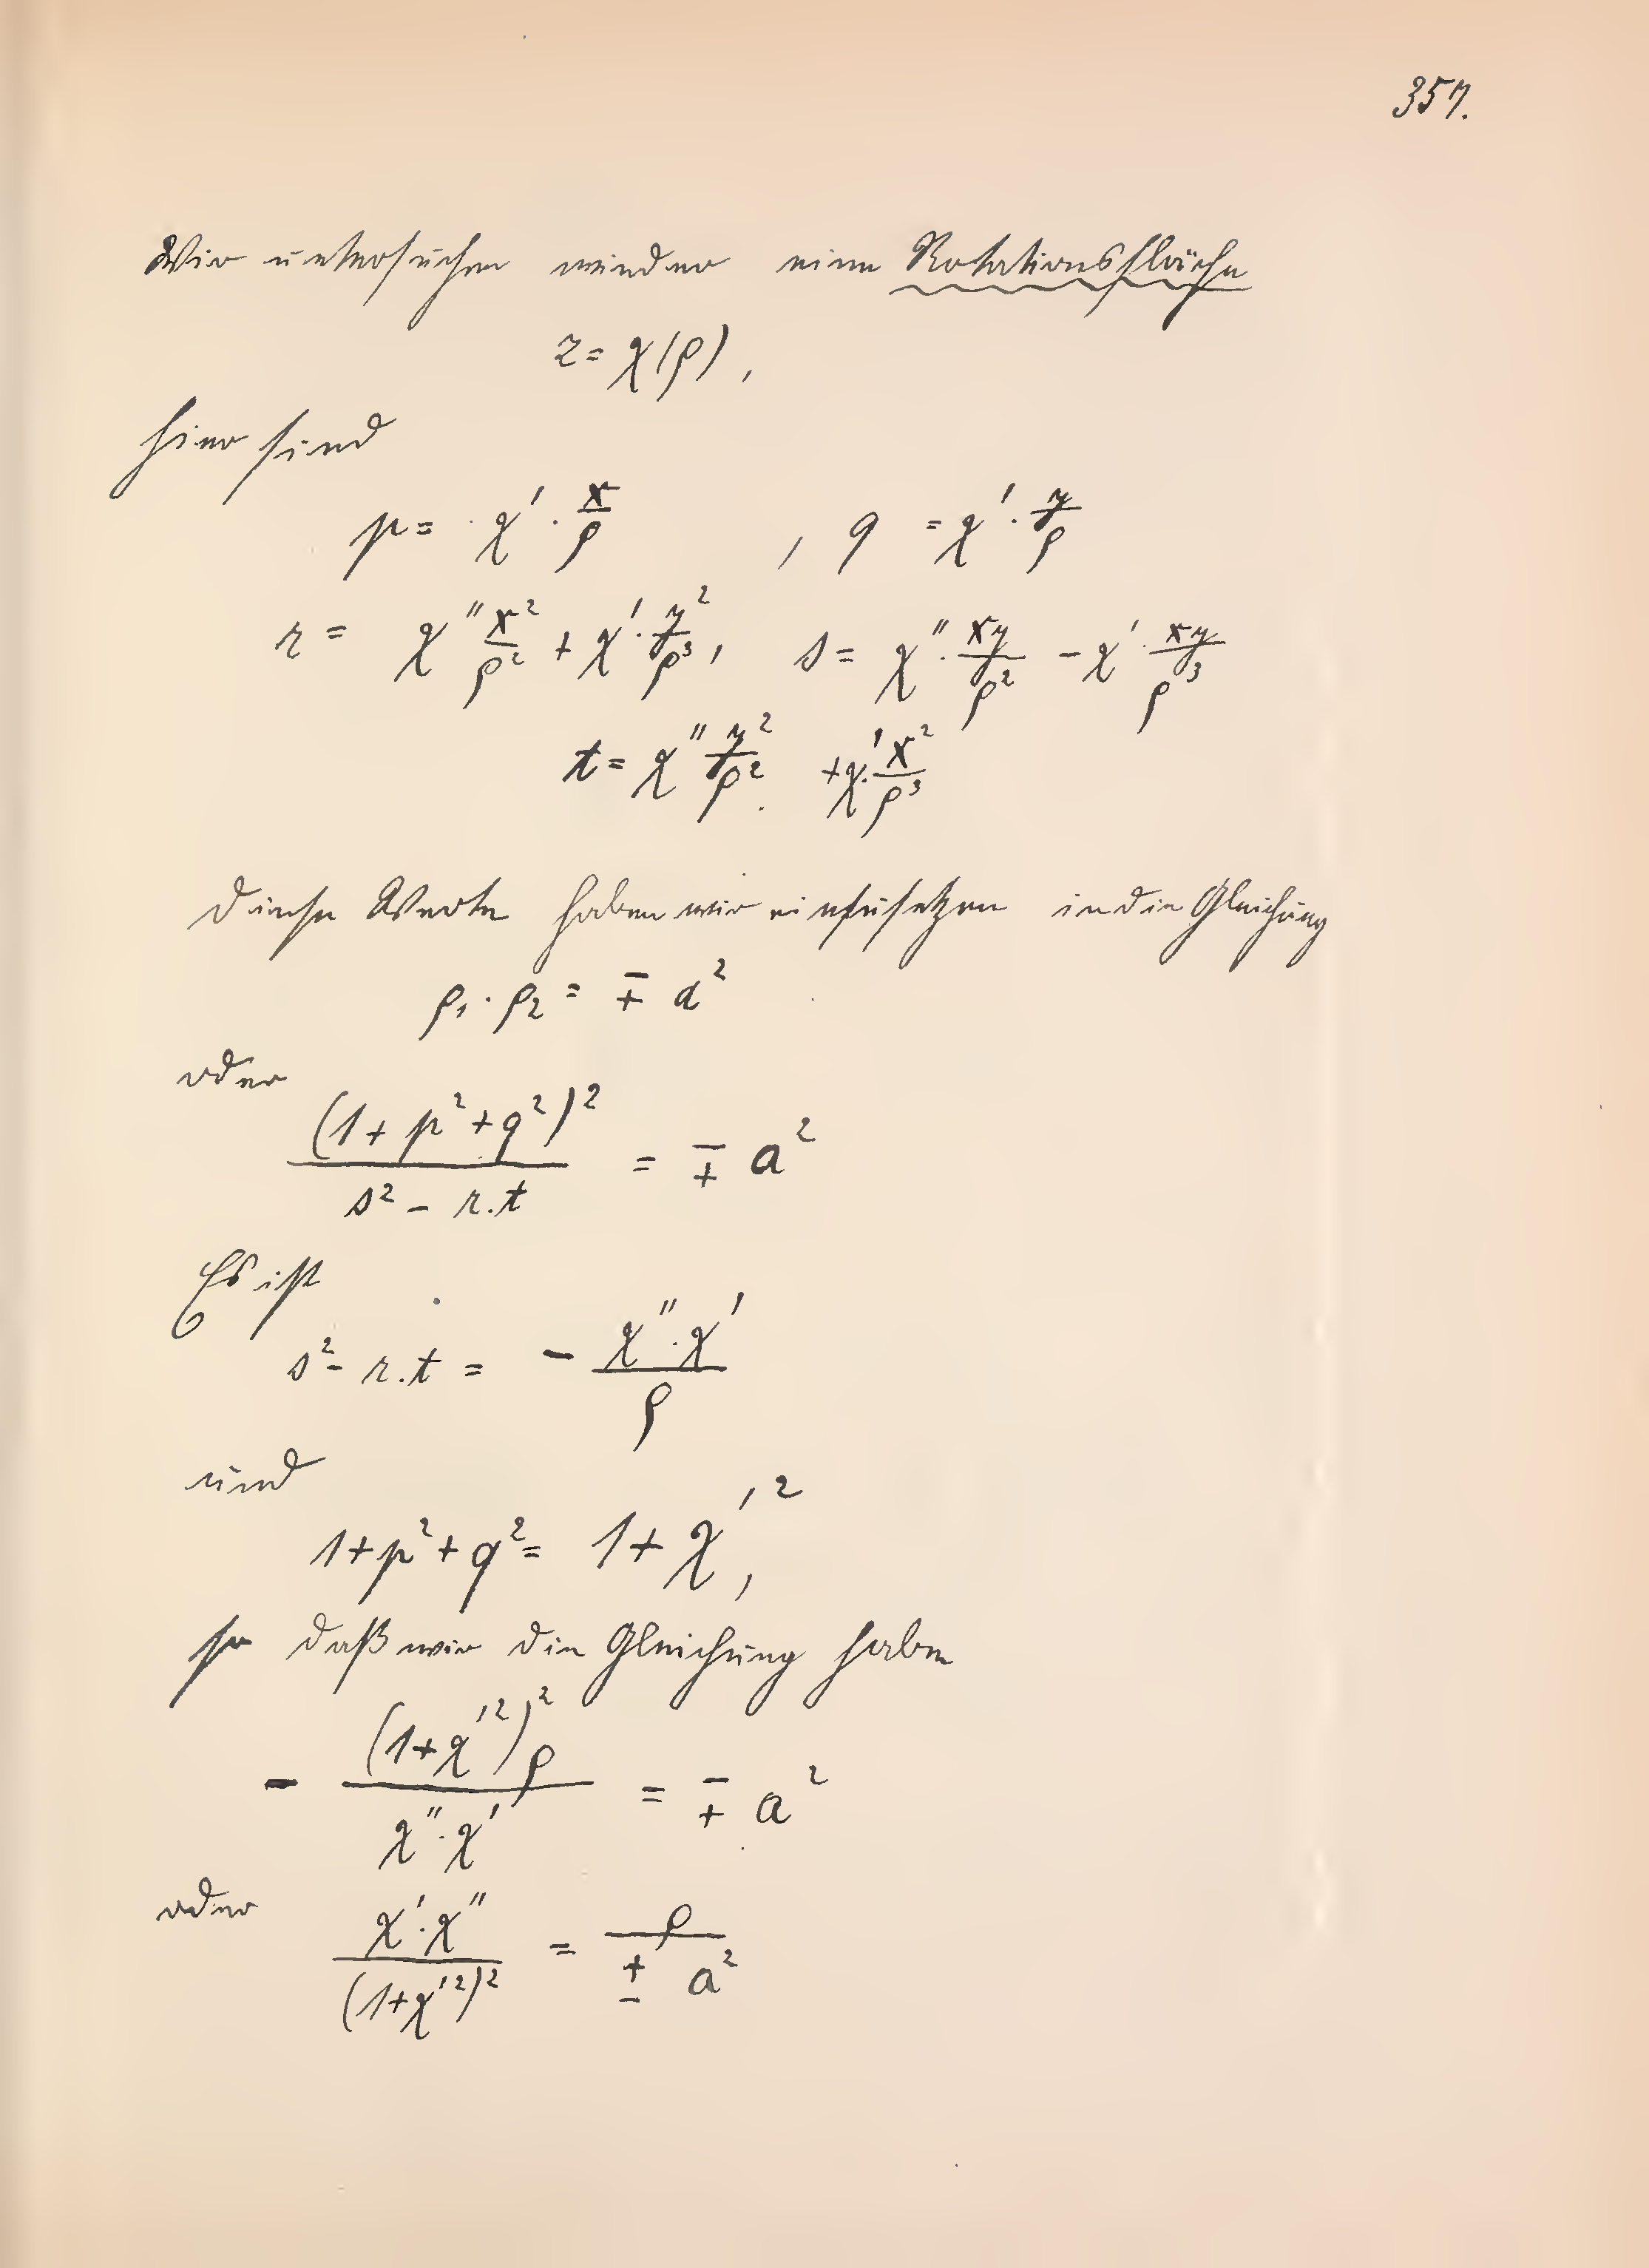 357.
Wir untersuchen wieder eine Rotationsfläche
z = χ(ρ),
hier sind
p = χ' · x/ρ , q = χ' · y/ρ
r = χ'' x²/ρ² + χ' · y²/ρ³, s = χ'' · xy/ρ² − χ' · xy/ρ³
t = χ'' y²/ρ² + χ' · x²/ρ³
Diese Werte haben wir einzusetzen in die Gleichung
ρ₁ · ρ₂ = ∓ a²
oder
(1 + p² + q²)² / (s² − r.t) = ∓ a²
Es ist
s² − r.t = − χ'' · χ' / ρ
und
1 + p² + q² = 1 + χ'²,
so daß wir die Gleichung haben
− (1 + χ'²)² ρ / (χ'' · χ') = ∓ a²
oder χ' · χ'' / (1 + χ'²)² = ρ / ± a²